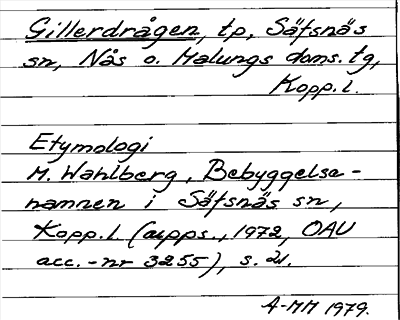 Gillerdrågen, tp, Säfsnäs
sn, Nås o. Malungs doms. tg,
Kopp. l.
Etymologi
M. Wahlberg, Bebyggelse-
namnen i Säfsnäs sn,
Kopp. l. (upps., 1972, OAU
acc.-nr 3255), s. 21.
A-MM 1979.